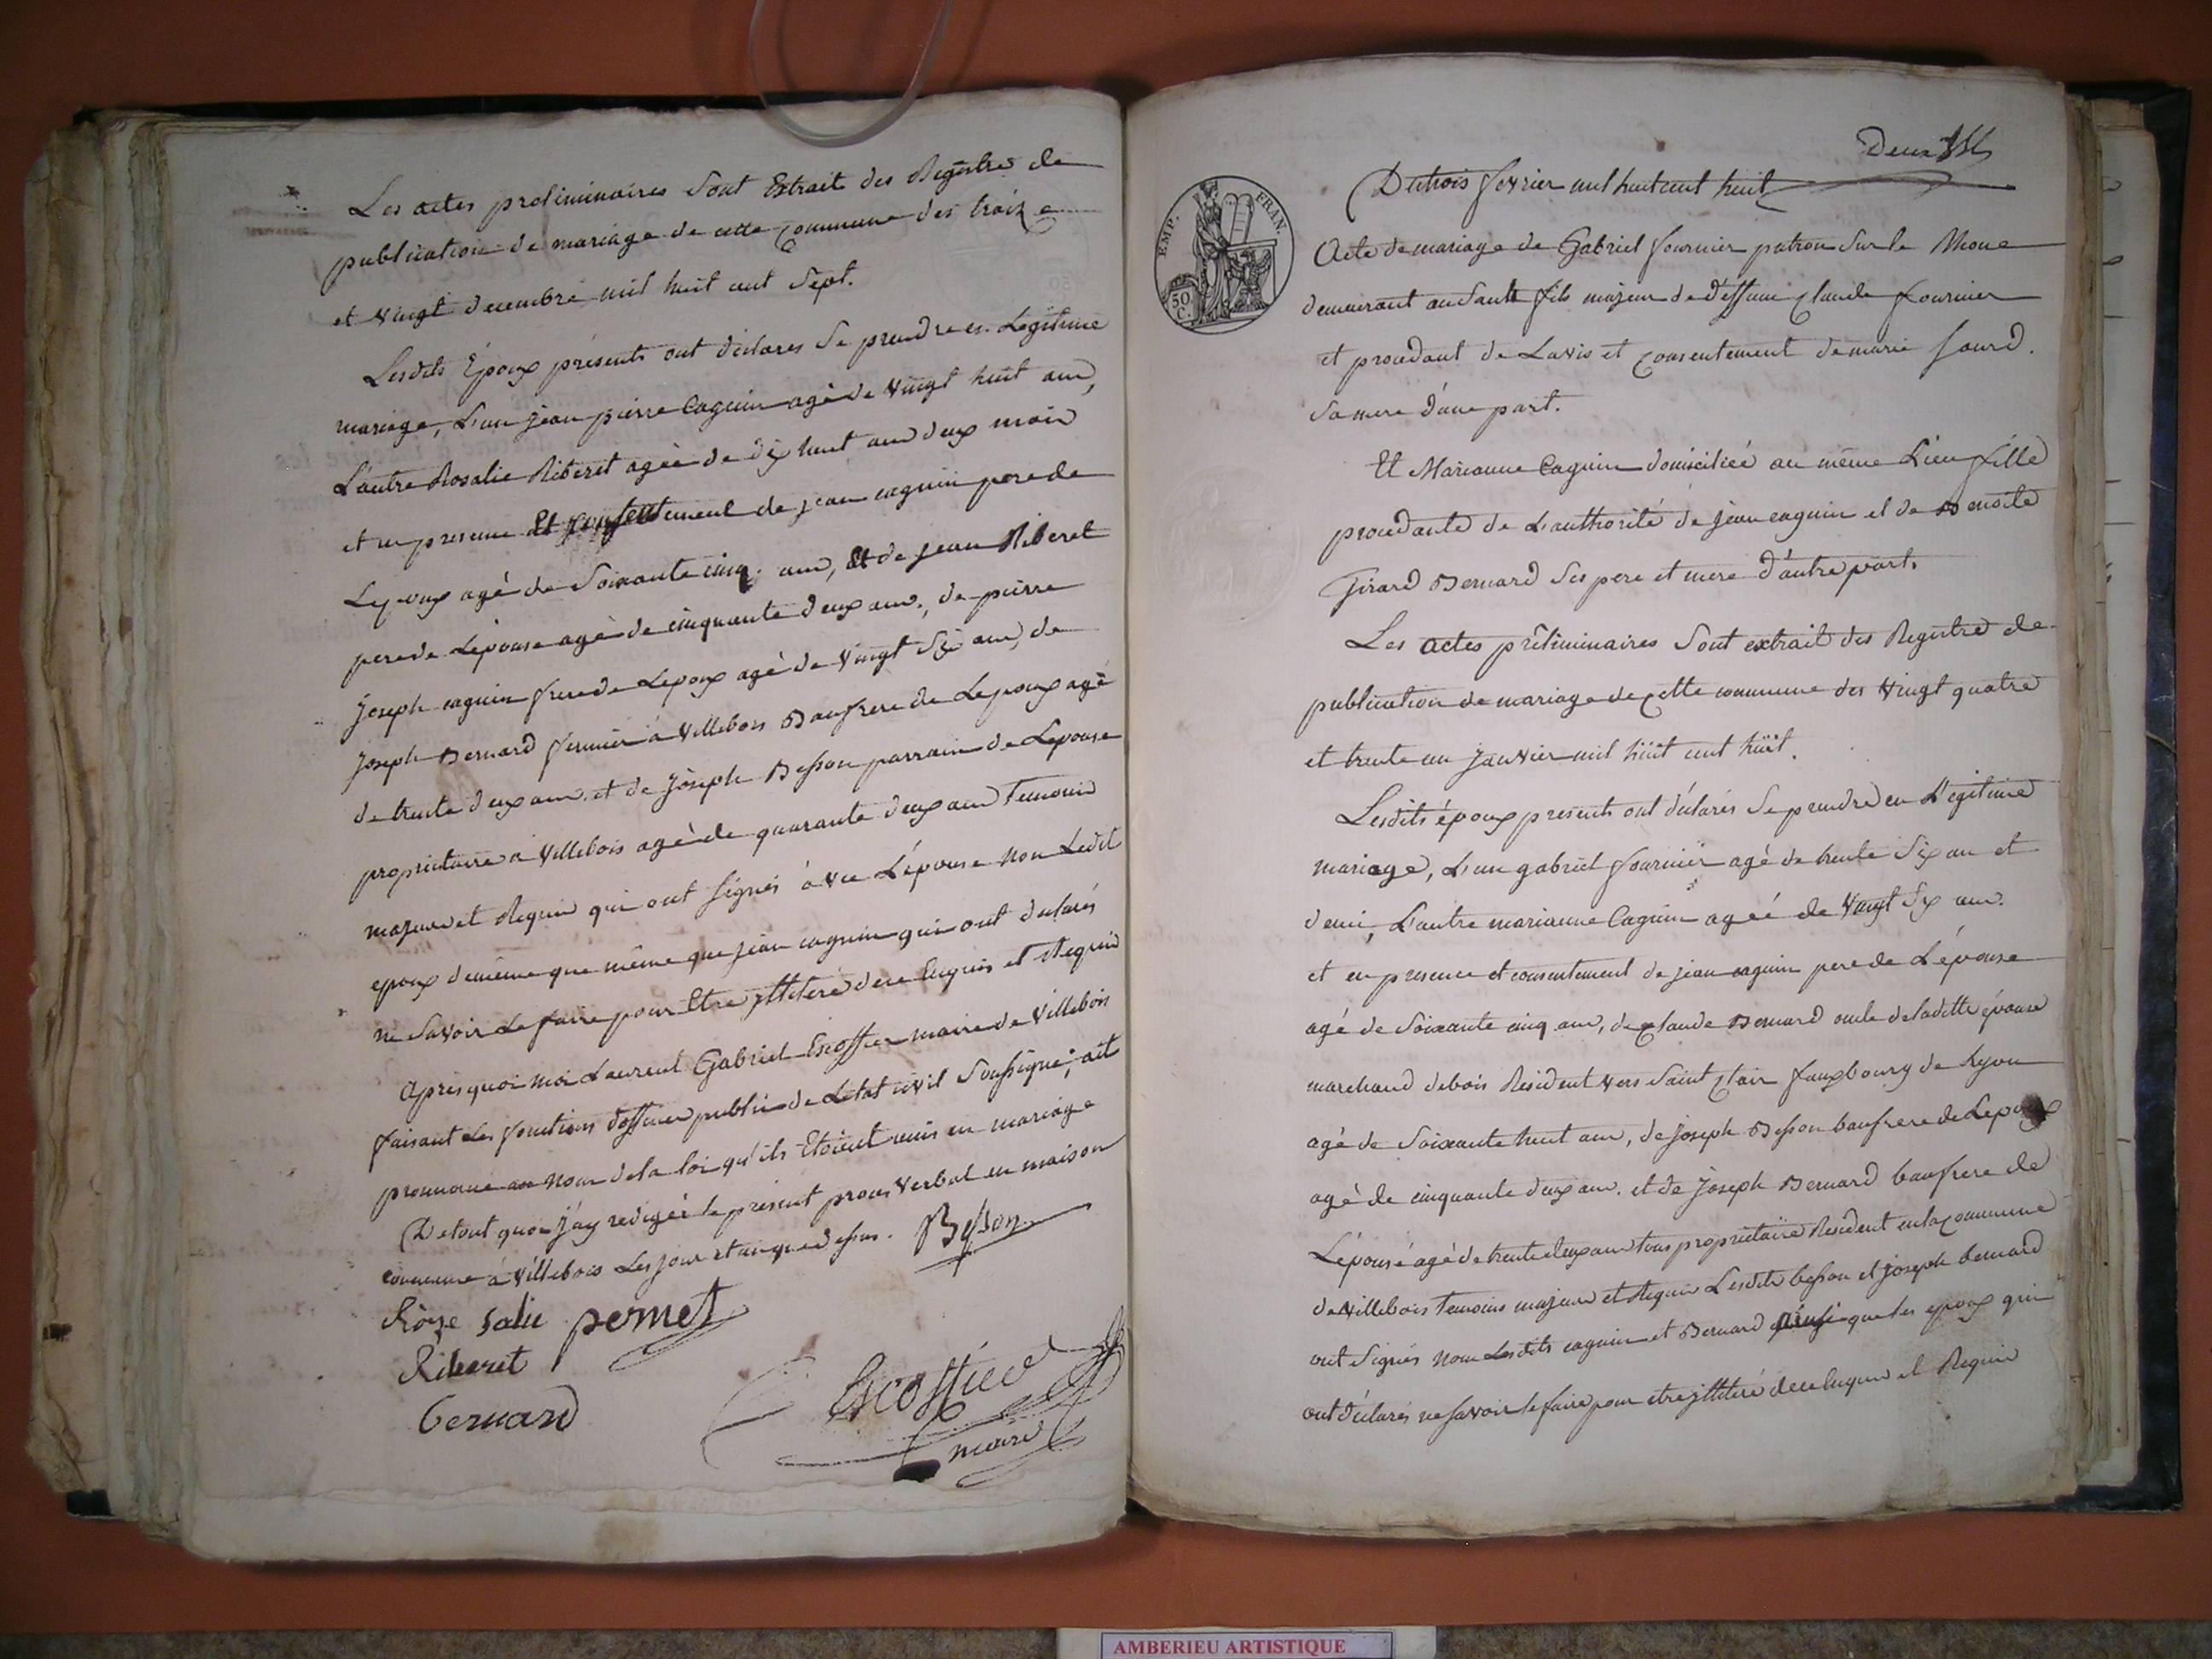 Les actes preliminaires sont Extrait des Registre de
publication de mariage de cette commune des treize
et vingt decembre mil huit cent sept.
Lesdits Epoux présents ont déclarés se prendre en Legitime
mariage, L'un jean pierre Caguin agé de vingt huit ans,
L'autre Rosalie Riberet agée de dix huit ans deux mois
et en presence Et consentement de jean caguin pere de
Lepoux agé de soixante cinq ans, Et de jean Riberet
pere de Lépouse agé de cinquante deux ans, de pierre
joseph caguin frere de Lepoux agé de vingt six ans, de
joseph Bernard fermier à villebois Baufrere de Lepoux agé
de trente deux ans et de joseph Besson parrain de Lepouse
proprietaire à villebois agé de quarante deux ans temoins
majeurs et Requis qui ont signés avec L'épouse non Ledit
epoux demême que même que jean caguin qui ont déclarés
ne savoir Le faire pour Etre ittéré de ce Enquis et Requis
après quoi moi Laurent Gabriel Escoffier maire de villebois
faisant Les fonctions d'officier public de L'état civil soussigné, ait
prononcé au nom de la loi qu'ils Etoient unis en mariage
De tout quoi j'ay redigéé le présent procès verbal en maison
commune à villebois Les jour et an que dessus. Besson
Rôze salie pernet
Riberet
bernard
Escoffier
maire
Deux
Du trois fevrier mil huit cent huit
EMP. FRAN.
50 C.
Acte de mariage de Gabriel fournier patron sur le Rhone
demeurant au Sault fils majeur de deffunt claude fournier
et procedant de L'avis et consentement de marie sourd.
sa mere d'une part.
Et Marianne Caguin domiciliée au même Lieu fille
procedante de L'authorité de jean caguin et de Benoite
Girard Bernard ses pere et mere d'autre part.
Les actes préliminaires sont extrait des Registre de
publication de mariage de cette commune des vingt quatre
et trente un janvier mil huit cent huit.
Lesdits époux présents ont déclarés se prendre en Légitime
mariage, L'un gabriel fournier agé de trente six an et
demi, L'autre marianne Caguin ageé de vingt six ans.
et en presence et consentement de jean caguin pere de L'épouse
agé de soixante cinq ans, de claude Bernard oncle de laditte épouse
marchand de bois Resident vers saint clair fauxbourg de Lyon
agé de soixante huit ans, de joseph Besson baufrere de Lepoux
agé de cinquante deux ans. et de joseph Bernard baufrere de
L'épouse agé de trente deux ans tous proprietaire Resident en la commune
de villebois temoins majeurs et Requis Lesdits besson et joseph bernard
ont signés non Lesdits caguin et Bernard ainsi que les epoux qui
ont déclarés ne savoir le faire pour etre ittéré de ce Enquis et Requis
AMBERIEU ARTISTIQUE